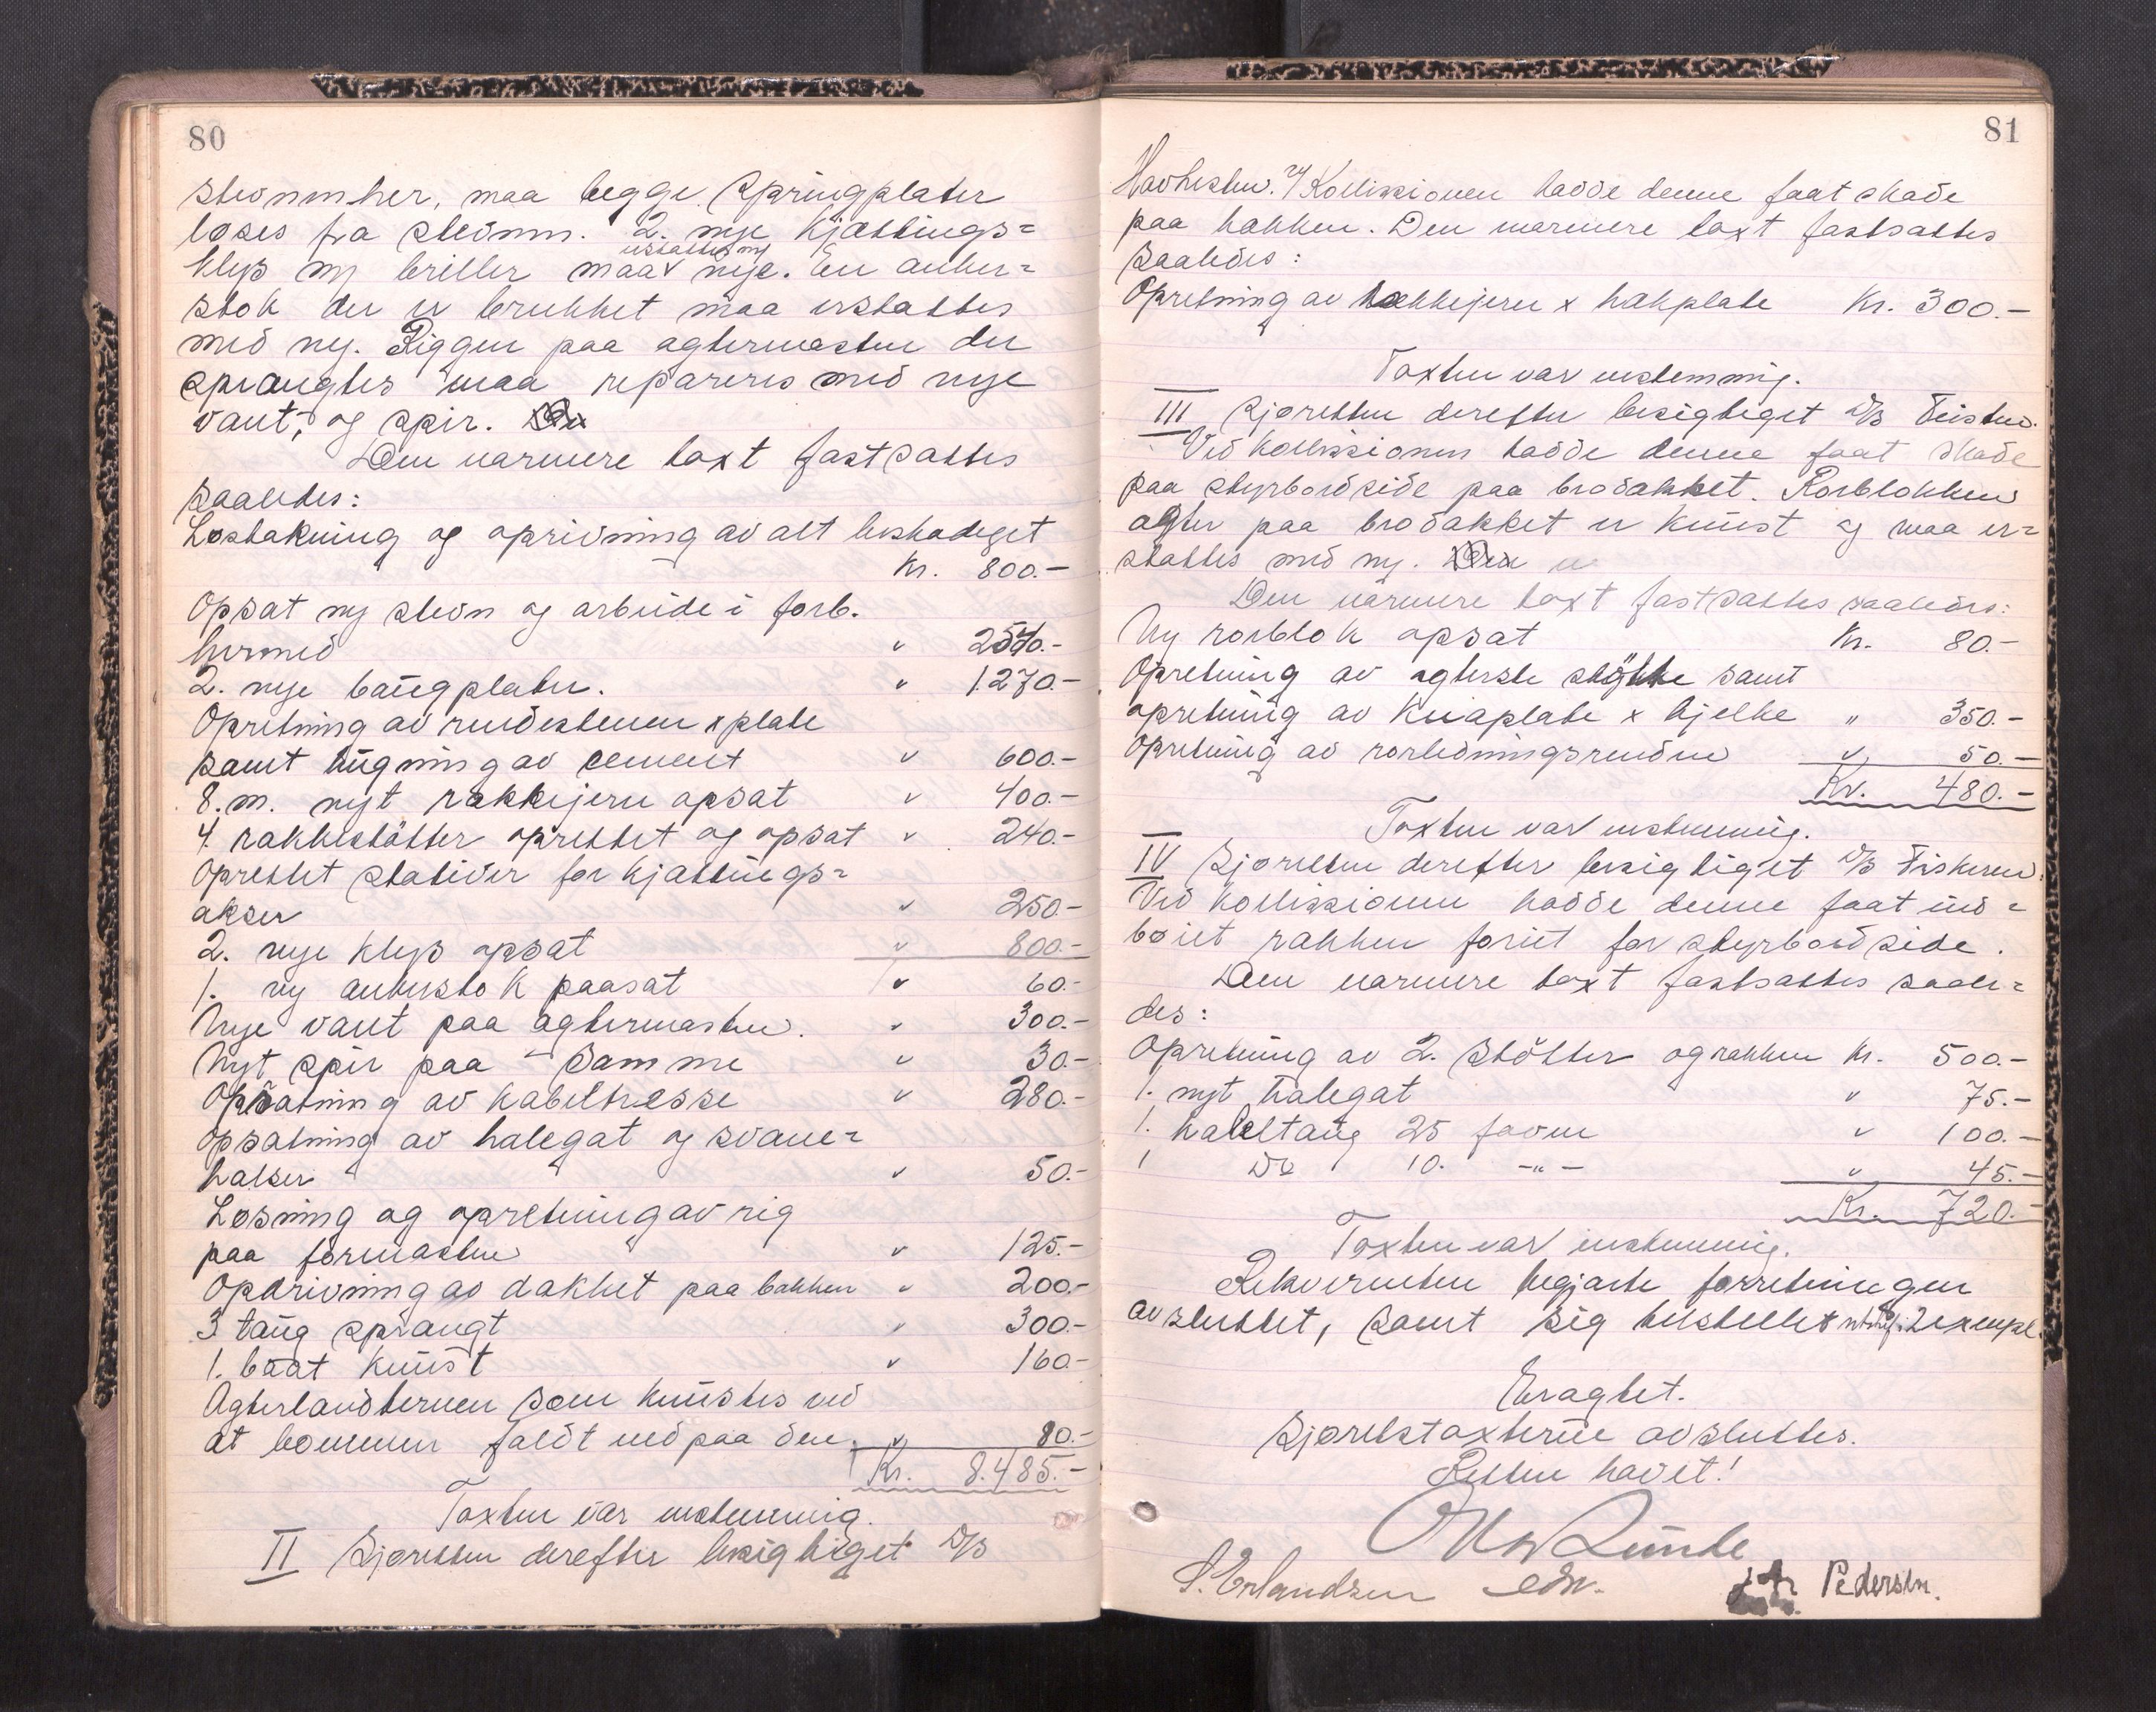 80
stevnen her, maa begge springplater
løses fra stevnen. 2. nye kjættings=
klys og briller maa erstattes nye. En anker=
stok der er brukket maa erstattes
med ny. Riggen paa agtermasten der
sprængtes maa repareres med nye
vant, og spir.
Den nærmere taxt fastsattes
saaledes:
Løstakning og oprivning av alt beskadeget
Kr. 800.-
Opsat ny stevn og arbeide i forb.
hermed " 2540.-
2. nye baugplater. " 1.270.-
Opretning av rendestenen x plate
samt hugning av cement " 600.-
8. m. nyt rækkejern opsat " 400.-
4. rækkestötter oprettet og opsat " 240.-
Oprettet stativer for kjættings=
akser " 250.-
2. nye klys opsat " 800.-
1. ny ankerstok paasat " 60.-
Nye vant paa agtermasten. " 300.-
Nyt spir paa - samme " 30.-
Opsatning av kabeltresse " 280.-
Opsatning av halegat og svane=
halser " 50.-
Løsning og opretning av rig
paa formasten " 125.-
Opdrivning av dækket paa bakken " 200.-
3 taug sprængt " 300.-
1. baat knust " 160.-
Agterlandternen som knustes ved
at bommen faldt ned paa den. " 80.-
Kr. 8.485.-
Taxten var enstemmig.
II Sjøretten derefter besigtiget D/S
81
Havhesten. Ved Kollissionen hadde denne faat skade
paa hækken. Den nærmere taxt fastsattes
saaledes:
Opretning av hækkejern x hækplate Kr. 300.-
Taxten var enstemmig.
III Sjøretten derefter besigtiget D/S Teisten.
Ved kollissionen hadde denne faat skade
paa styrbordside paa brodækket. Rorblokken
agter paa brodækket er knust og maa er=
stattes med ny.
Den nærmere taxt fastsattes saaledes:
Ny rorblok opsat Kr. 80.-
Opretning av agterste støtte samt
opretning av knæplate x bjelke " 350.-
Opretning av rorledningsrenden " 50.-
Kr. 480.-
Taxten var enstemmig.
IV Sjøretten derefter besigtiget D/S Fiskeren.
Ved kollissionen hadde denne faat ind=
bøiet rækken foriit for styrbord side.
Den nærmere taxt fastsattes saale=
des:
Opretning av 2. støtter og rækken Kr. 500.-
1. nyt halegat " 75.-
1. kabeltaug 25 favne " 100.-
1 Do 10. -"- " 45.-
Kr. 720.-
Taxten var enstemmig.
Rekvirenten begjærte forretningen
avsluttet, samt sig tilstillet utskr. i 2 exempl.
Eragtet.
Sjørettstaxterne avsluttes.
Retten hævet!
Otto Lunde
S. Erlandsen edv. Pedersen.